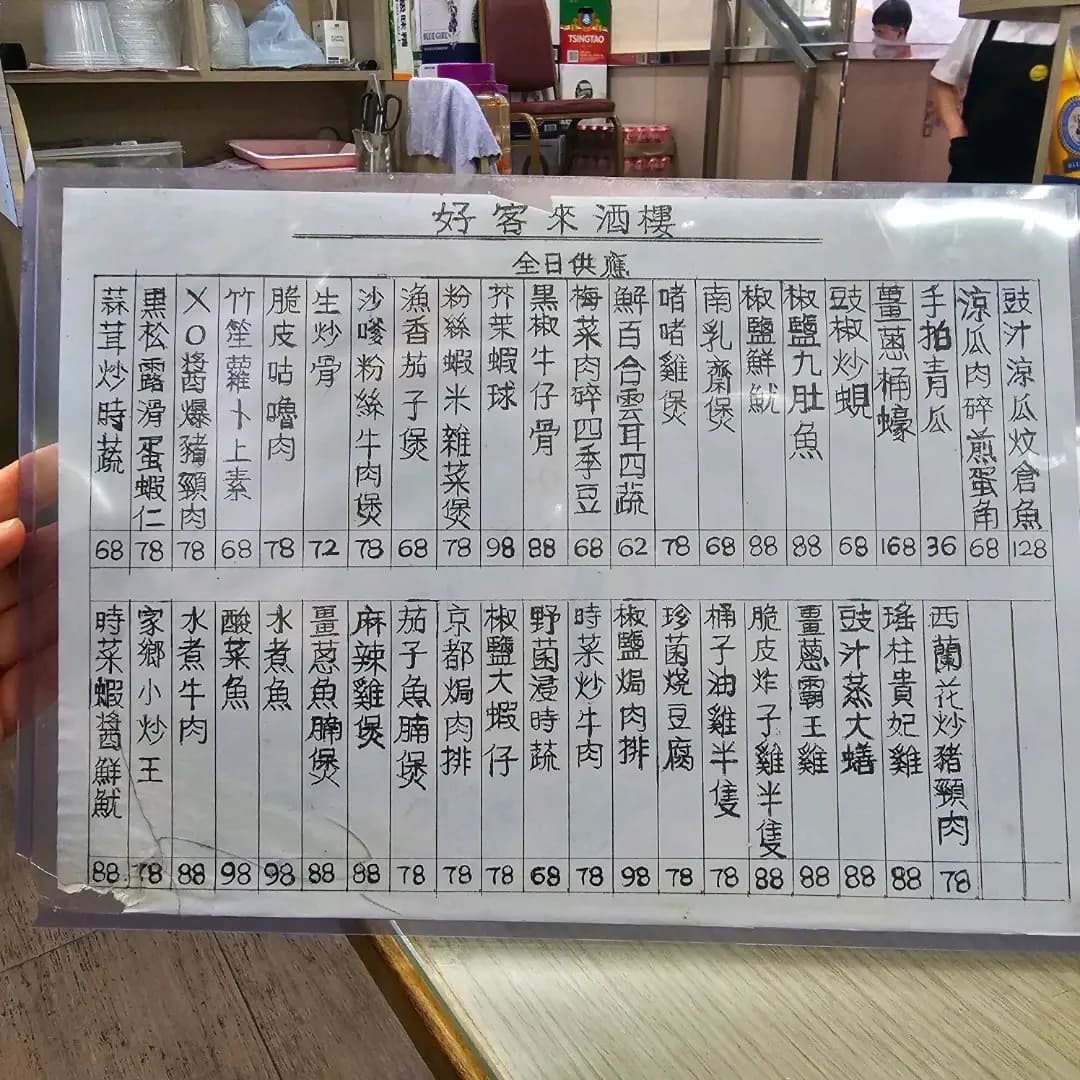 BLUE GIRL
TSINGTAO
好客來酒樓
全日供應
豉汁涼瓜炆倉魚 128
涼瓜肉碎煎蛋角 68
手拍青瓜 36
薑蔥桶蠔 168
豉椒炒蜆 68
椒鹽九肚魚 88
椒鹽鮮魷 88
南乳齋煲 68
啫啫雞煲 78
鮮百合雲耳四蔬 62
梅菜肉碎四季豆 68
黑椒牛仔骨 88
芥茉蝦球 98
粉絲蝦米雜菜煲 78
漁香茄子煲 68
沙嗲粉絲牛肉煲 78
生炒骨 72
脆皮咕嚕肉 78
竹笙蘿卜上素 68
XO醬爆豬頸肉 78
黑松露滑蛋蝦仁 78
蒜茸炒時蔬 68
西蘭花炒豬頸肉 78
瑤柱貴妃雞 88
豉汁蒸大鱔 88
薑蔥霸王雞 88
脆皮炸子雞半隻 88
桶子油雞半隻 78
珍菌燒豆腐 78
椒鹽焗肉排 98
時菜炒牛肉 78
野菌浸時蔬 68
椒鹽大蝦仔 78
京都焗肉排 78
茄子魚腩煲 78
麻辣雞煲 88
薑蔥魚腩煲 88
水煮魚 98
酸菜魚 98
水煮牛肉 88
家鄉小炒王 78
時菜蝦醬鮮魷 88